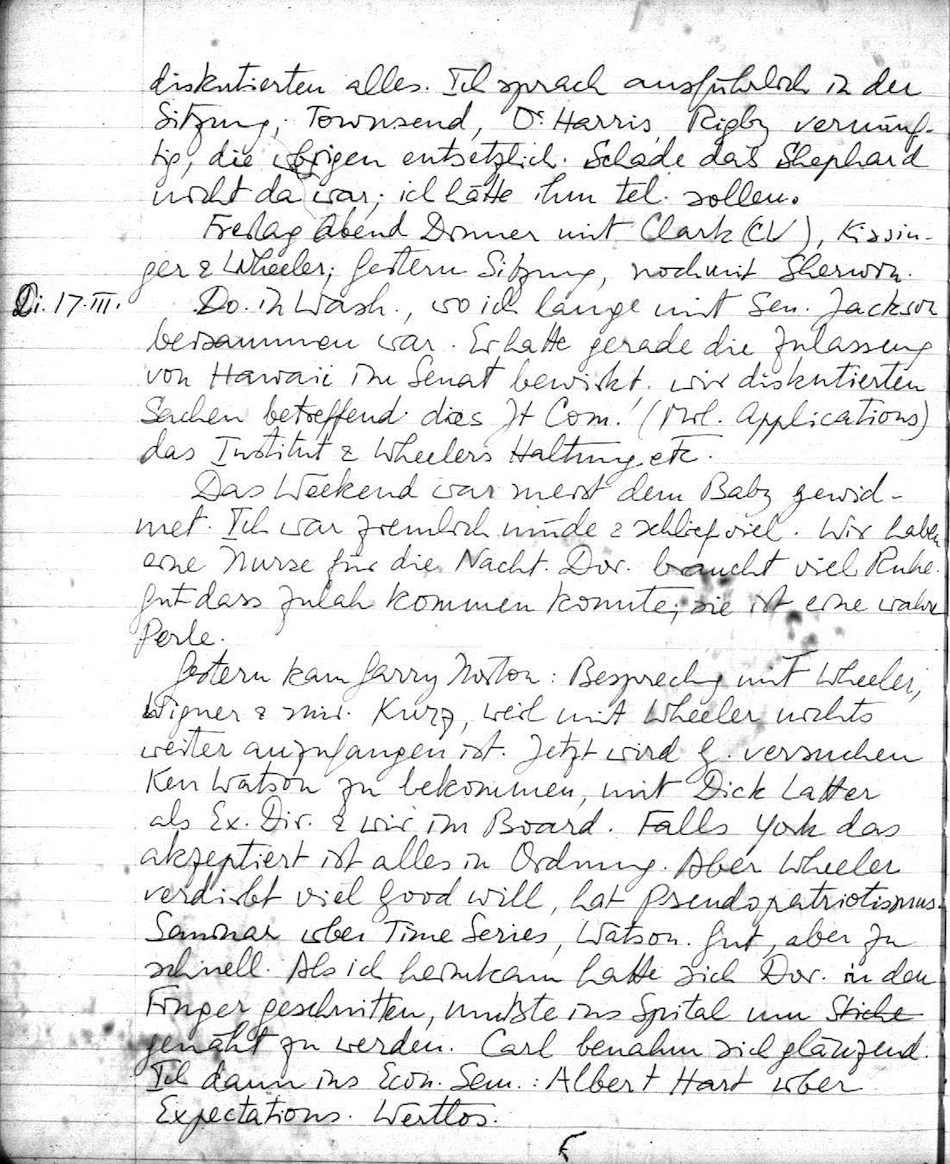 diskutierten alles. Ich sprach ausführlich in der
Sitzung; Townsend, Dr Harris, Rigby vernünf-
tig, die übrigen entsetzlich. Schade das Shephard
nicht da war; ich hätte ihm tel. sollen.
Freitag Abend Dinner mit Clark (CV), Kissin-
ger & Wheeler; gestern Sitzung, noch mit Sherwin.
Di. 17. III. Do. in Wash., wo ich lange mit Sen. Jackson
beisammen war. Er hatte gerade die Zulassung
von Hawaii im Senat bewirkt. wir diskutierten
Sachen betreffend dies Jt Com. (Mil. Applications)
das Institut & Wheelers Haltung etc.
Das Weekend war meist dem Baby gewid-
met. Ich war ziemlich müde & schlief viel. Wir haben
eine Nurse für die Nacht. Dor. braucht viel Ruhe.
Gut dass Zulah kommen konnte; sie ist eine wahre
Perle.
Gestern kam Garry Norton: Besprechg mit Wheeler,
Wigner & mir. Kurz, weil mit Wheeler nichts
weiter anzufangen ist. Jetzt wird G. versuchen
Ken Watson zu bekommen, mit Dick Latter
als Ex. Dir. & wir im Board. Falls York das
akzeptiert ist alles in Ordnung. Aber Wheeler
verdirbt viel good will, hat Pseudopatriotismus.
Seminar über Time Series, Watson. Gut, aber zu
schnell. Als ich heimkam hatte sich Dor. in den
Finger geschnitten, mußte ins Spital um Stiche
genäht zu werden. Carl benahm sich glänzend.
Ich dann ins Econ. Sem.: Albert Hart über
Expectations. Wertlos.